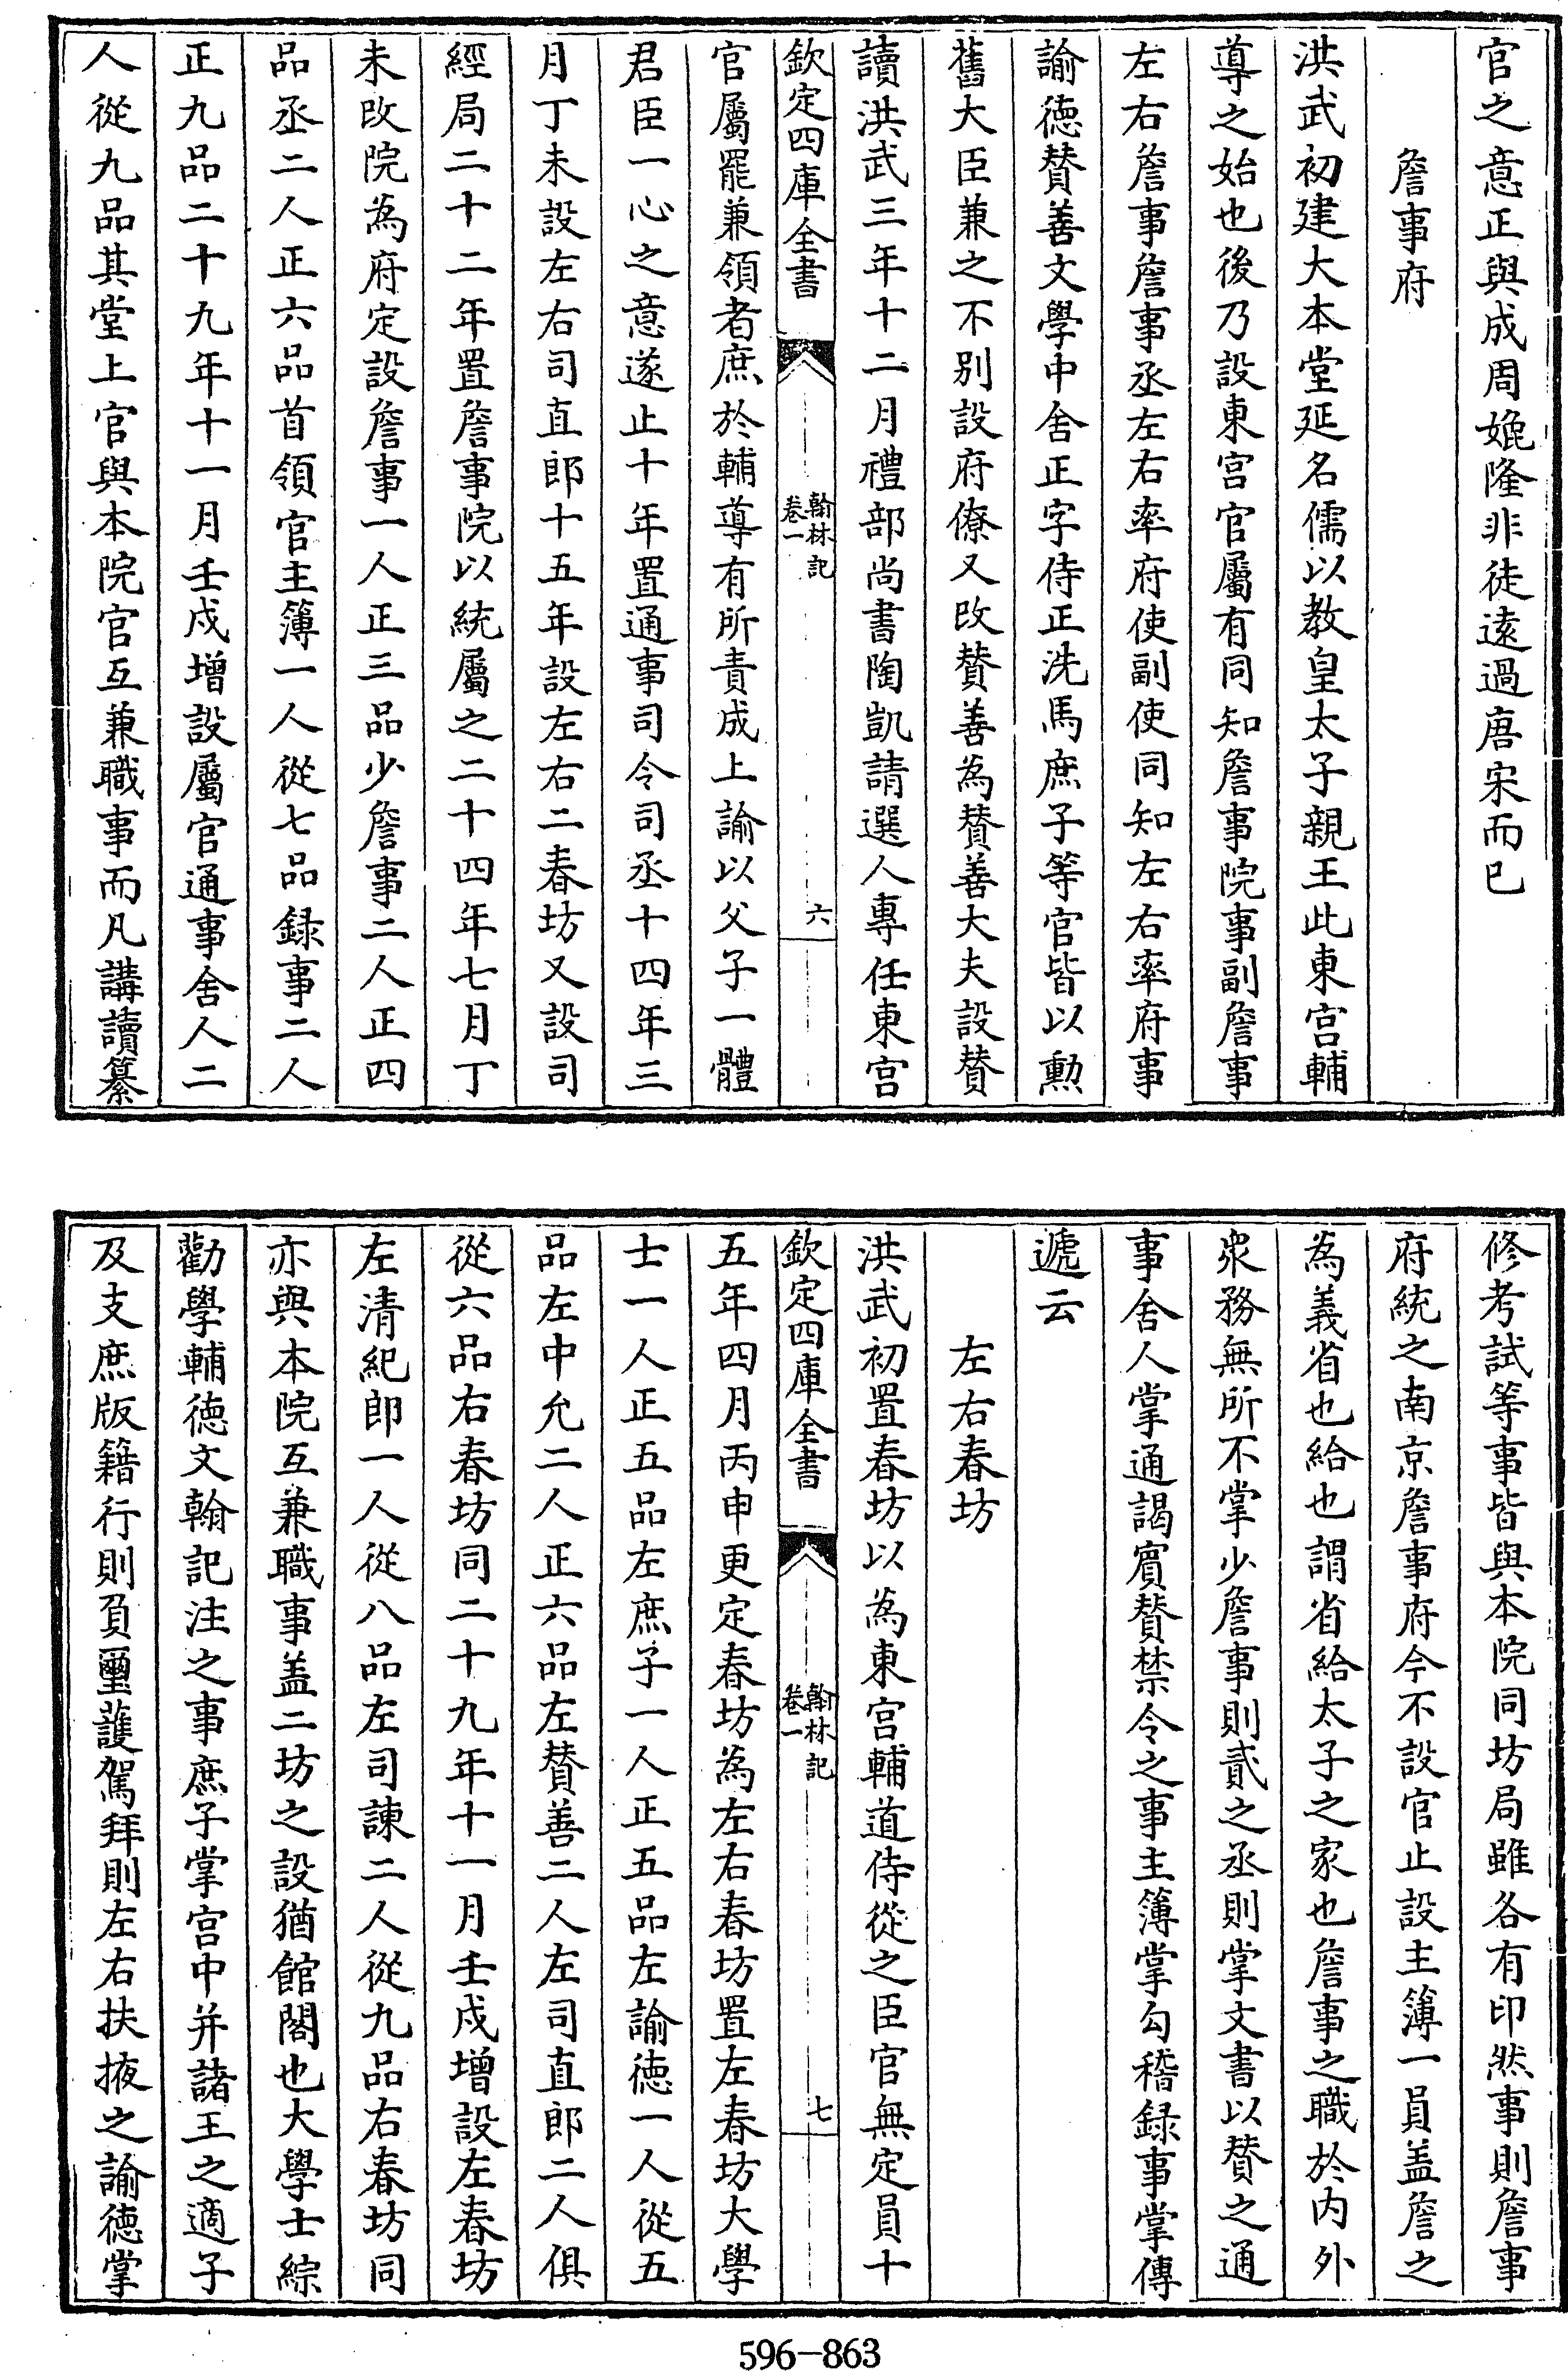 官之意正與成周媲隆非徒遠過唐宋而已
詹事府
洪武初建大本堂延名儒以教皇太子親王此東宫輔
導之始也後乃設東宫官屬有同知詹事院事副詹事
左右詹事詹事丞左右率府使副使同知左右率府事
諭徳賛善文學中舍正字侍正洗馬庶子等官皆以勲
舊大臣兼之不别設府僚又改賛善為賛善大夫設賛
讀洪武三年十二月禮部尚書陶凱請選人專任東宫
欽定四庫全書
翰林記
卷一
六
官屬罷兼領者庶於輔導有所責成上諭以父子一體
君臣一心之意遂止十年置通事司令司丞十四年三
月丁未設左右司直郎十五年設左右二春坊又設司
經局二十二年置詹事院以統屬之二十四年七月丁
未改院為府定設詹事一人正三品少詹事二人正四
品丞二人正六品首領官主簿一人從七品録事二人
正九品二十九年十一月壬戌增設屬官通事舍人二
人從九品其堂上官與本院官互兼職事而凡講讀纂
修考試等事皆與本院同坊局雖各有印然事則詹事
府統之南京詹事府今不設官止設主簿一員盖詹之
為義省也給也謂省給太子之家也詹事之職於内外
衆務無所不掌少詹事則貳之丞則掌文書以賛之通
事舍人掌通謁賓賛禁令之事主簿掌勾稽録事掌傳
遞云
左右春坊
洪武初置春坊以為東宫輔道侍從之臣官無定員十
欽定四庫全書
翰林記
卷一
七
五年四月丙申更定春坊為左右春坊置左春坊大學
士一人正五品左庶子一人正五品左諭徳一人從五
品左中允二人正六品左賛善二人左司直郎二人俱
從六品右春坊同二十九年十一月壬戌增設左春坊
左清紀郎一人從八品左司諫二人從九品右春坊同
亦與本院互兼職事盖二坊之設猶館閣也大學士綜
勸學輔徳文翰記注之事庶子掌宫中并諸王之適子
及支庶版籍行則負璽䕶駕拜則左右扶掖之諭徳掌
596-863